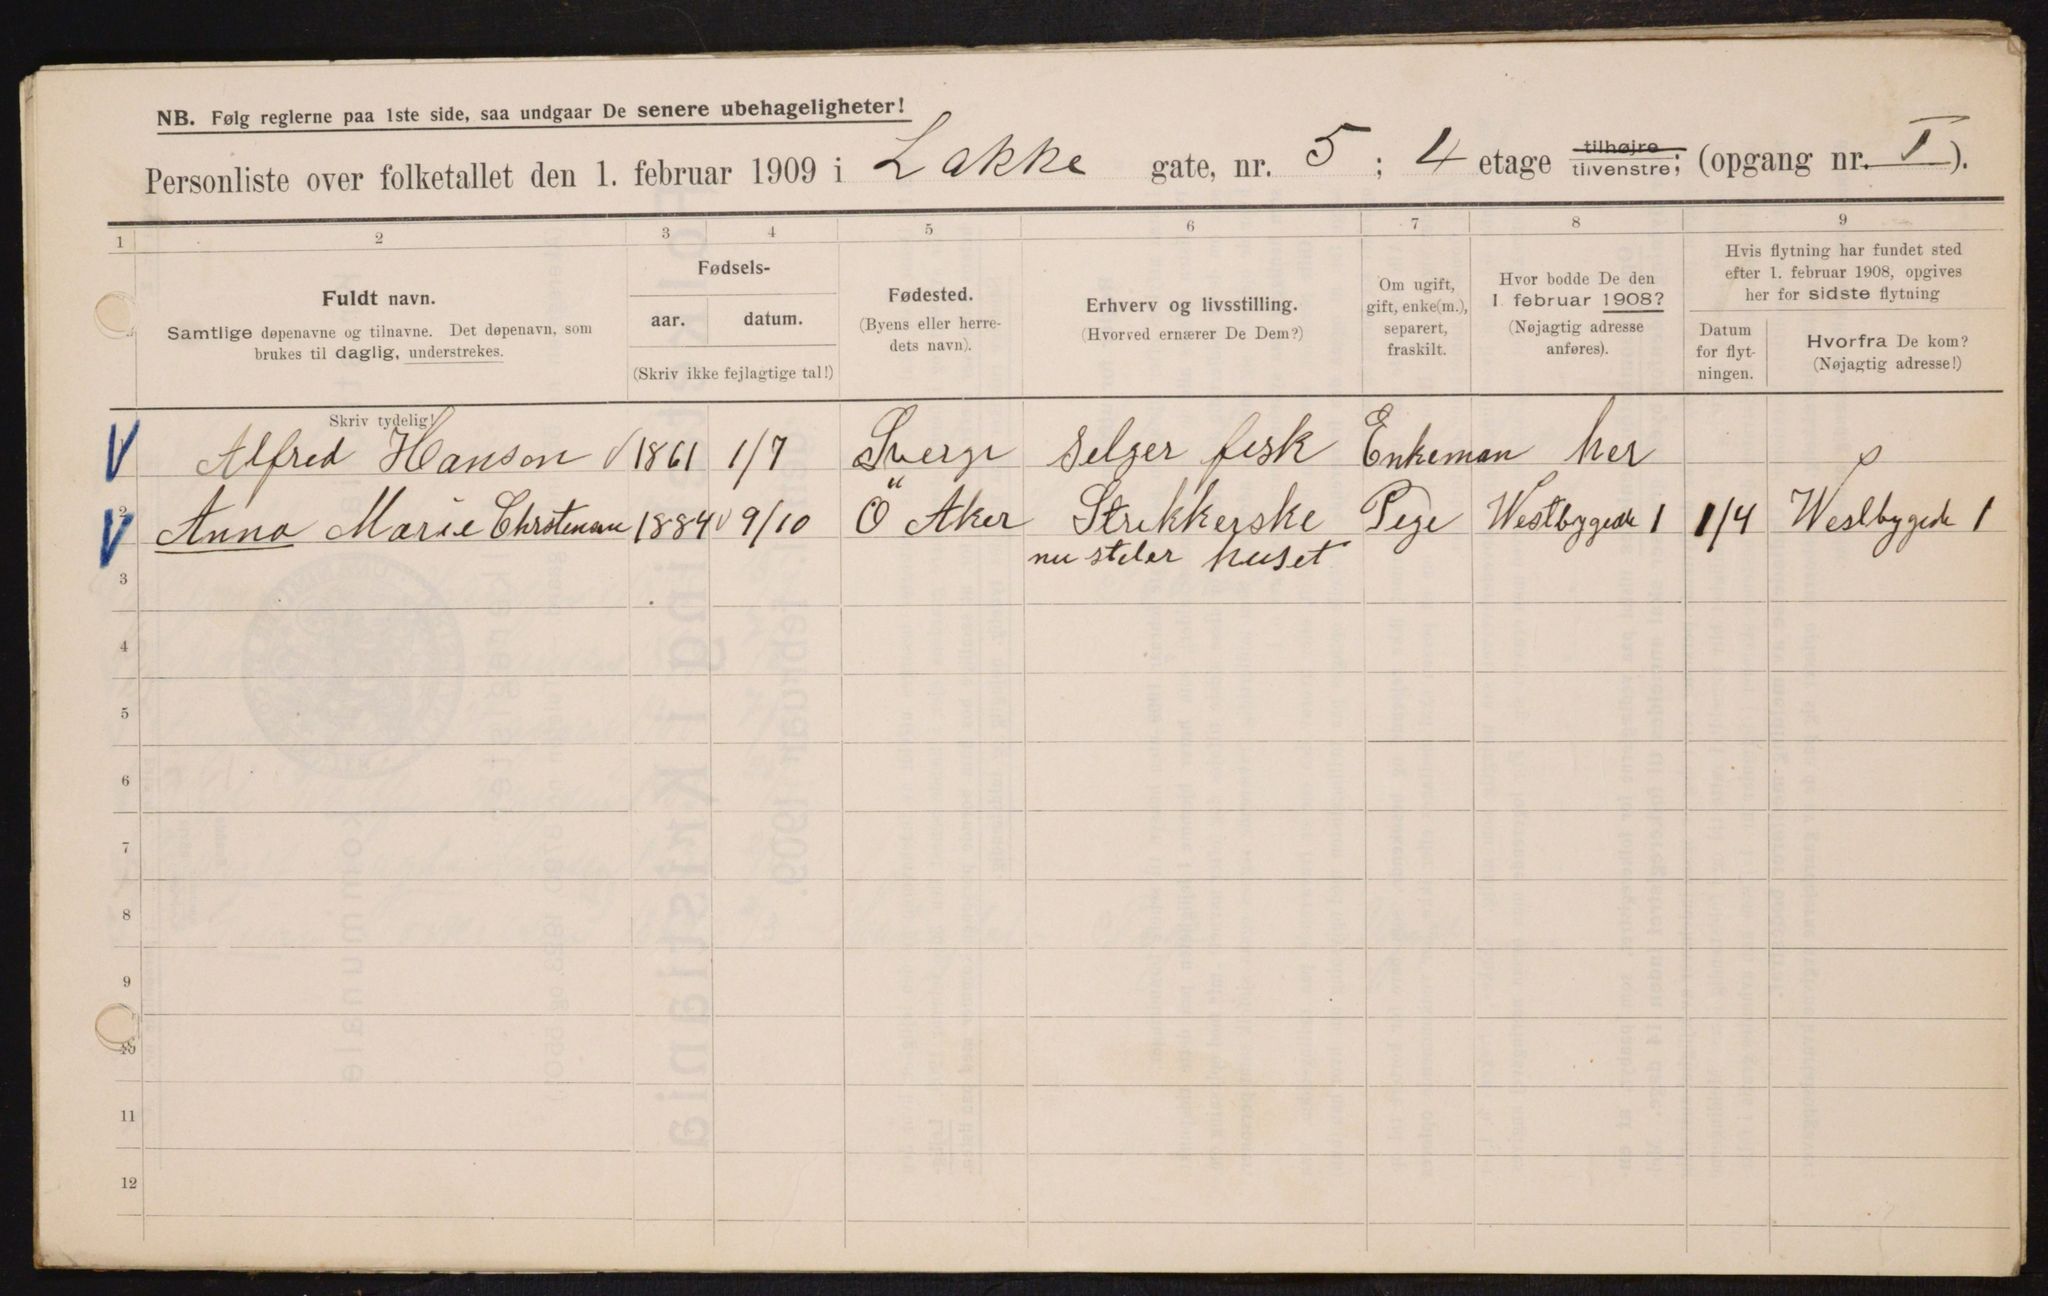 NB. Følg reglerne paa 1ste side, saa undgaar De senere ubehageligheter!
Personliste over folketallet den 1. februar 1909 i Lakke gate, nr. 5 ; 4 etage tilhøjre tilvenstre; (opgang nr. I ).
1 2 3 4 5 6 7 8 9
Fuldt navn.
Samtlige døpenavne og tilnavne. Det døpenavn, som
brukes til daglig, understrekes.
Fødsels-
aar. datum.
(Skriv ikke fejlagtige tal!)
Fødested.
(Byens eller herre-
dets navn).
Erhverv og livsstilling.
(Hvorved ernærer De Dem?)
Om ugift,
gift, enke(m.),
separert,
fraskilt.
Hvor bodde De den
1. februar 1908?
(Nøjagtig adresse
anføres).
Hvis flytning har fundet sted
efter 1. februar 1908, opgives
her for sidste flytning
Datum
for flyt-
ningen.
Hvorfra De kom?
(Nøjagtig adresse!)
Skriv tydelig!
Alfred Hanson 1861 1/7 Sverge selger fisk Enkeman her
2 Anna Marie Chrstensen 1884 9/10 Ö Aker Strikkerske Pige Westbygade 1 1/4 Westbygede 1
nu steler huset
3
4
5
6
7
8
9
10
11
12